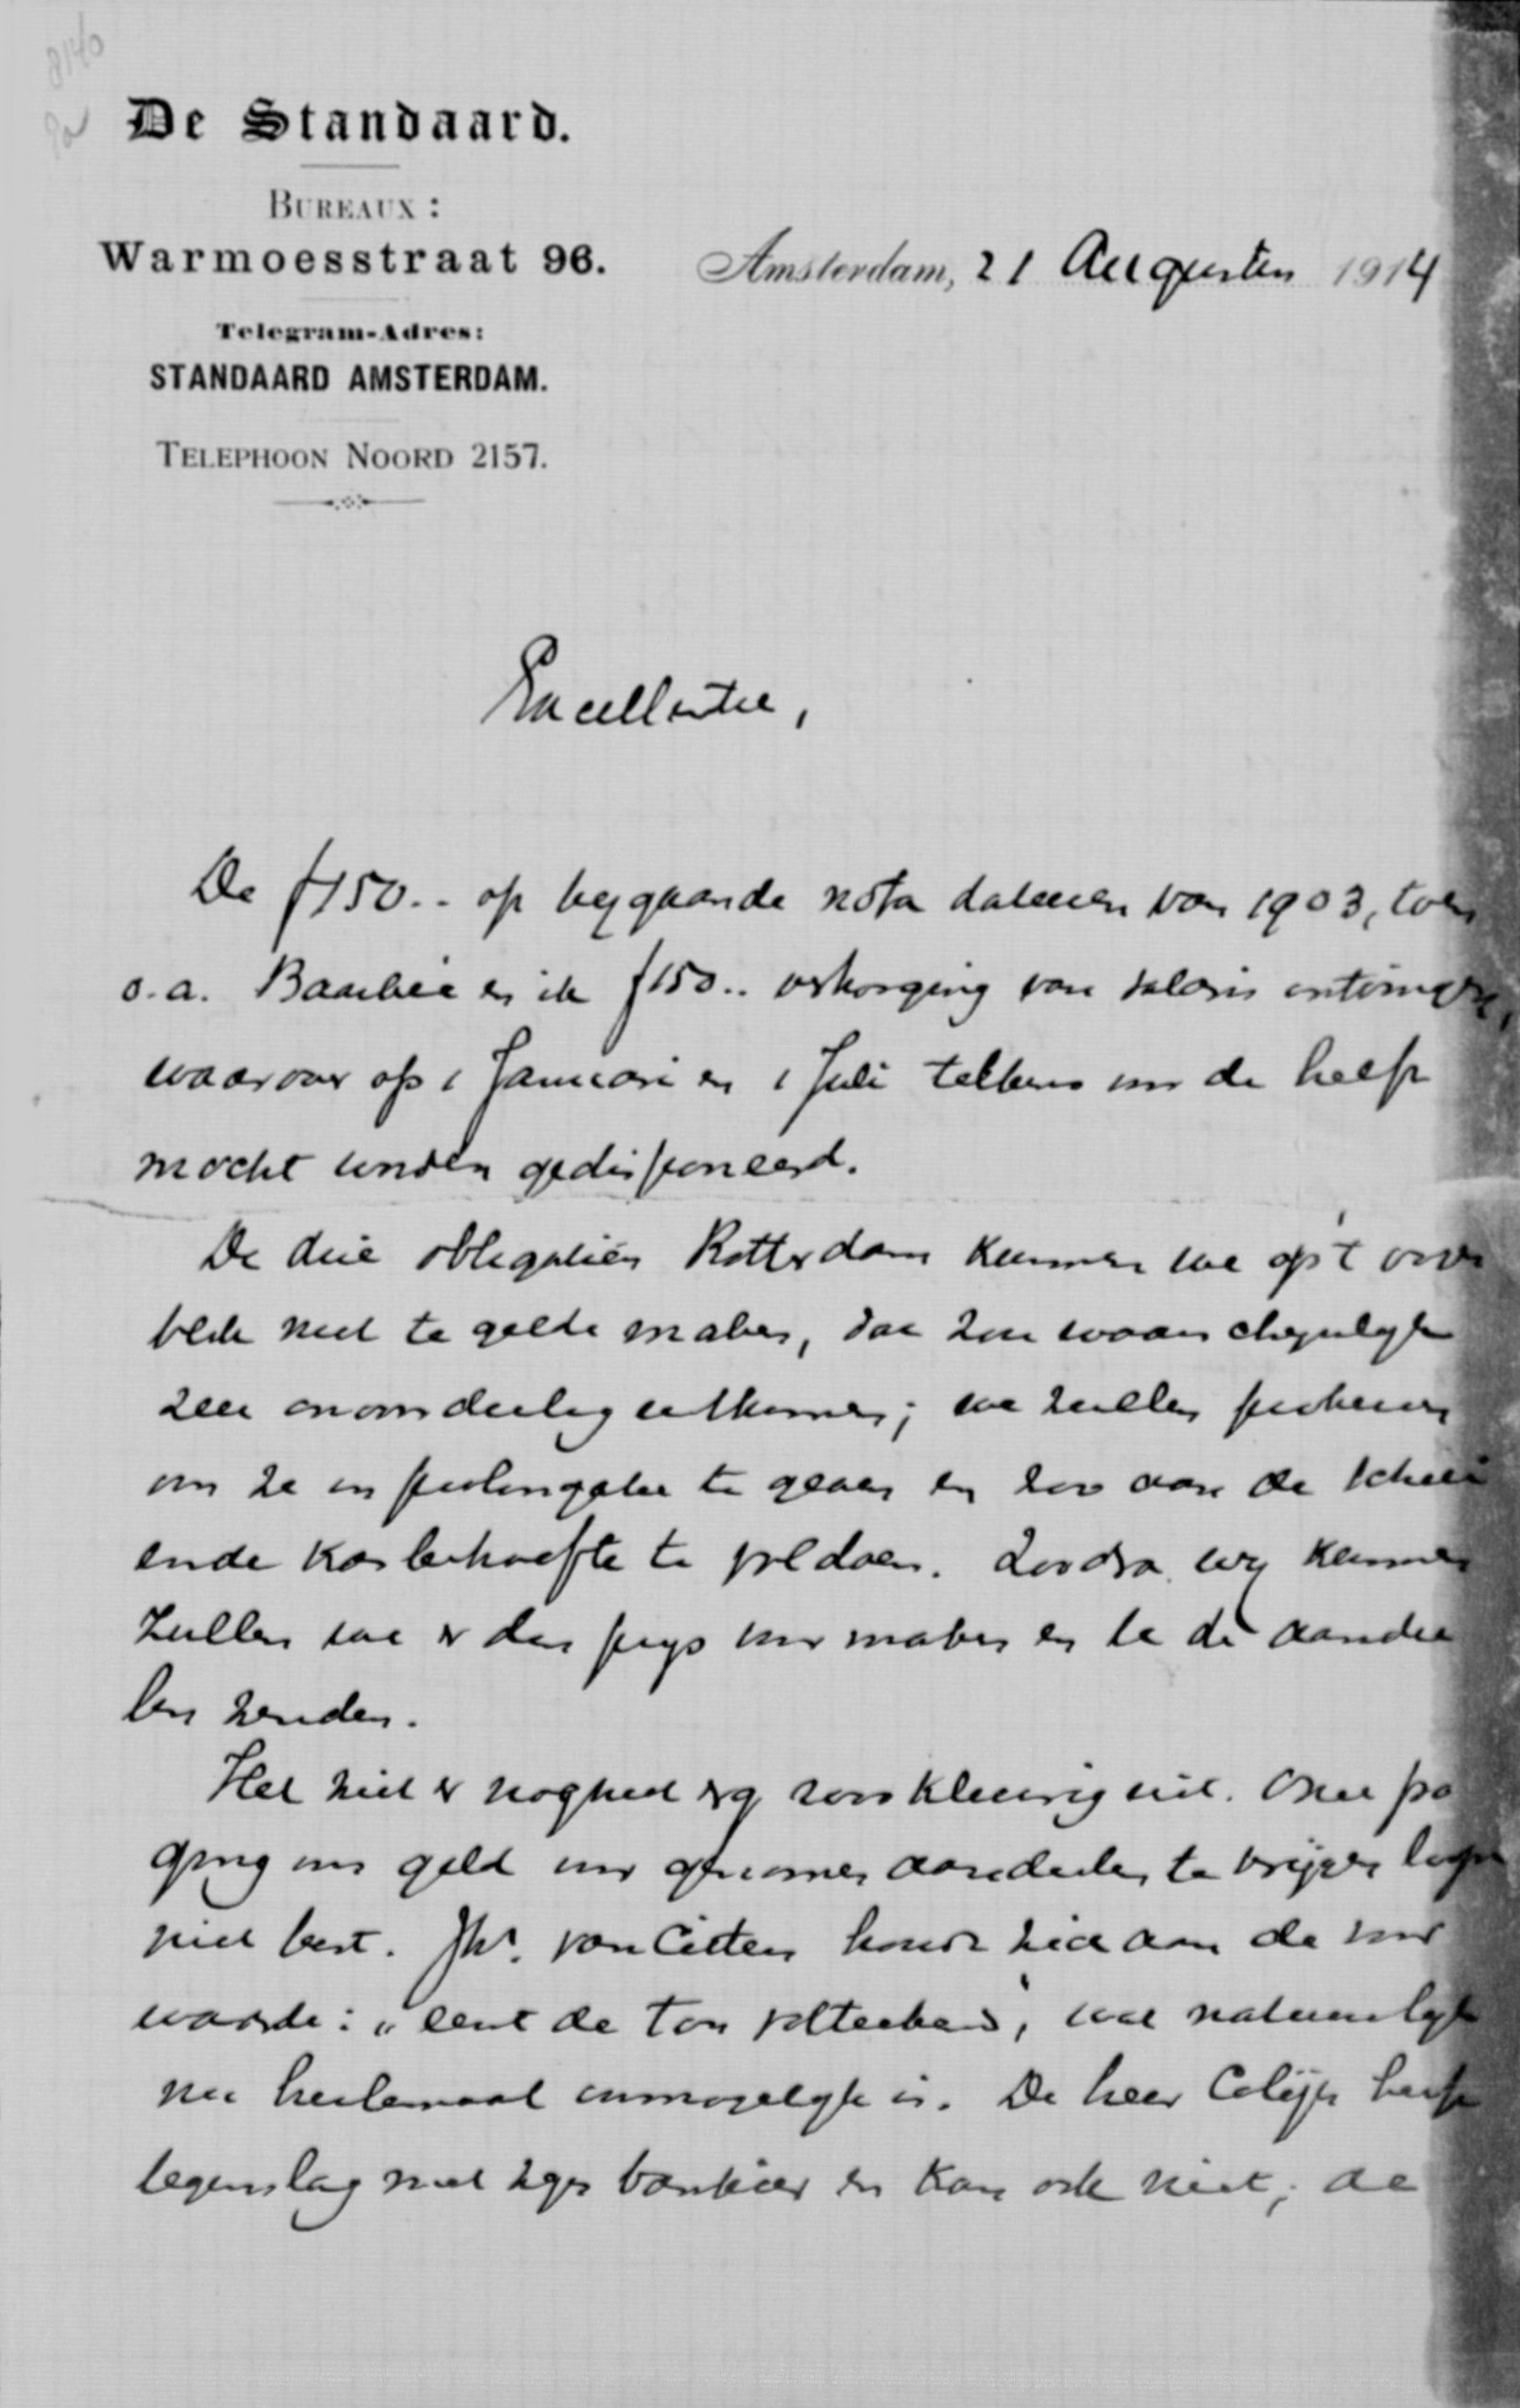 8140
De Standaard.
BUREAUX:
Warmoesstraat 96.
Amsterdam, 21 Augustus 1914
Telegram-Adres:
STANDAARD AMSTERDAM.
TELEPHOON NOORD 2157.
Excellentie,
De f 150.- op bijgaande nota dateeren van 1903, toen
o.a. en ik f 150.- verhooging van salaris ontvingen,
waarover op 1 Januari en 1 Juli telkens voor de helft
mocht worden gedisponeerd.
De drie obligatiën Rotterdam kunnen we op 't oogen
blik niet te gelde maken, dat zou waarschijnlijk
zeer onvoordeelig uitkomen; we zullen probeeren
om ze in prolongatie te geven en zoo aan de
ende kasbehoefte te voldoen. Zoodra wij kunnen
zullen we er den prijs voor maken en U de aandee
len zenden.
Het ziet er nog niet erg rooskleurig uit. Onze po
ging om geld voor genomen aandeelen te krijgen
niet best. Jhr. van Citters houdt zich aan de voor
waarde: "eerst de ton volteekend", wat natuurlijk
nu heelemaal onmogelijk is. De heer Colijn heeft
tegenslag met zijn bankier en kan ook niet; de